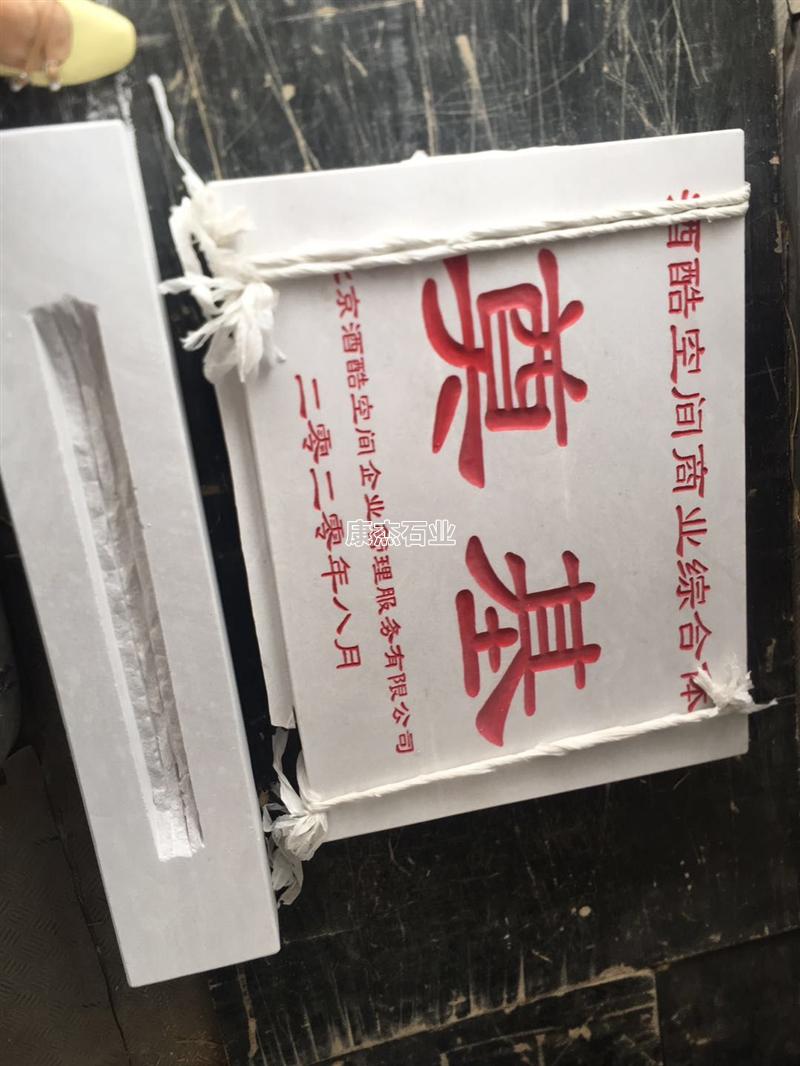 酒酷空间商业综合体
奠基
北京酒酷空间企业管理服务有限公司
二零二零年八月
康杰石业